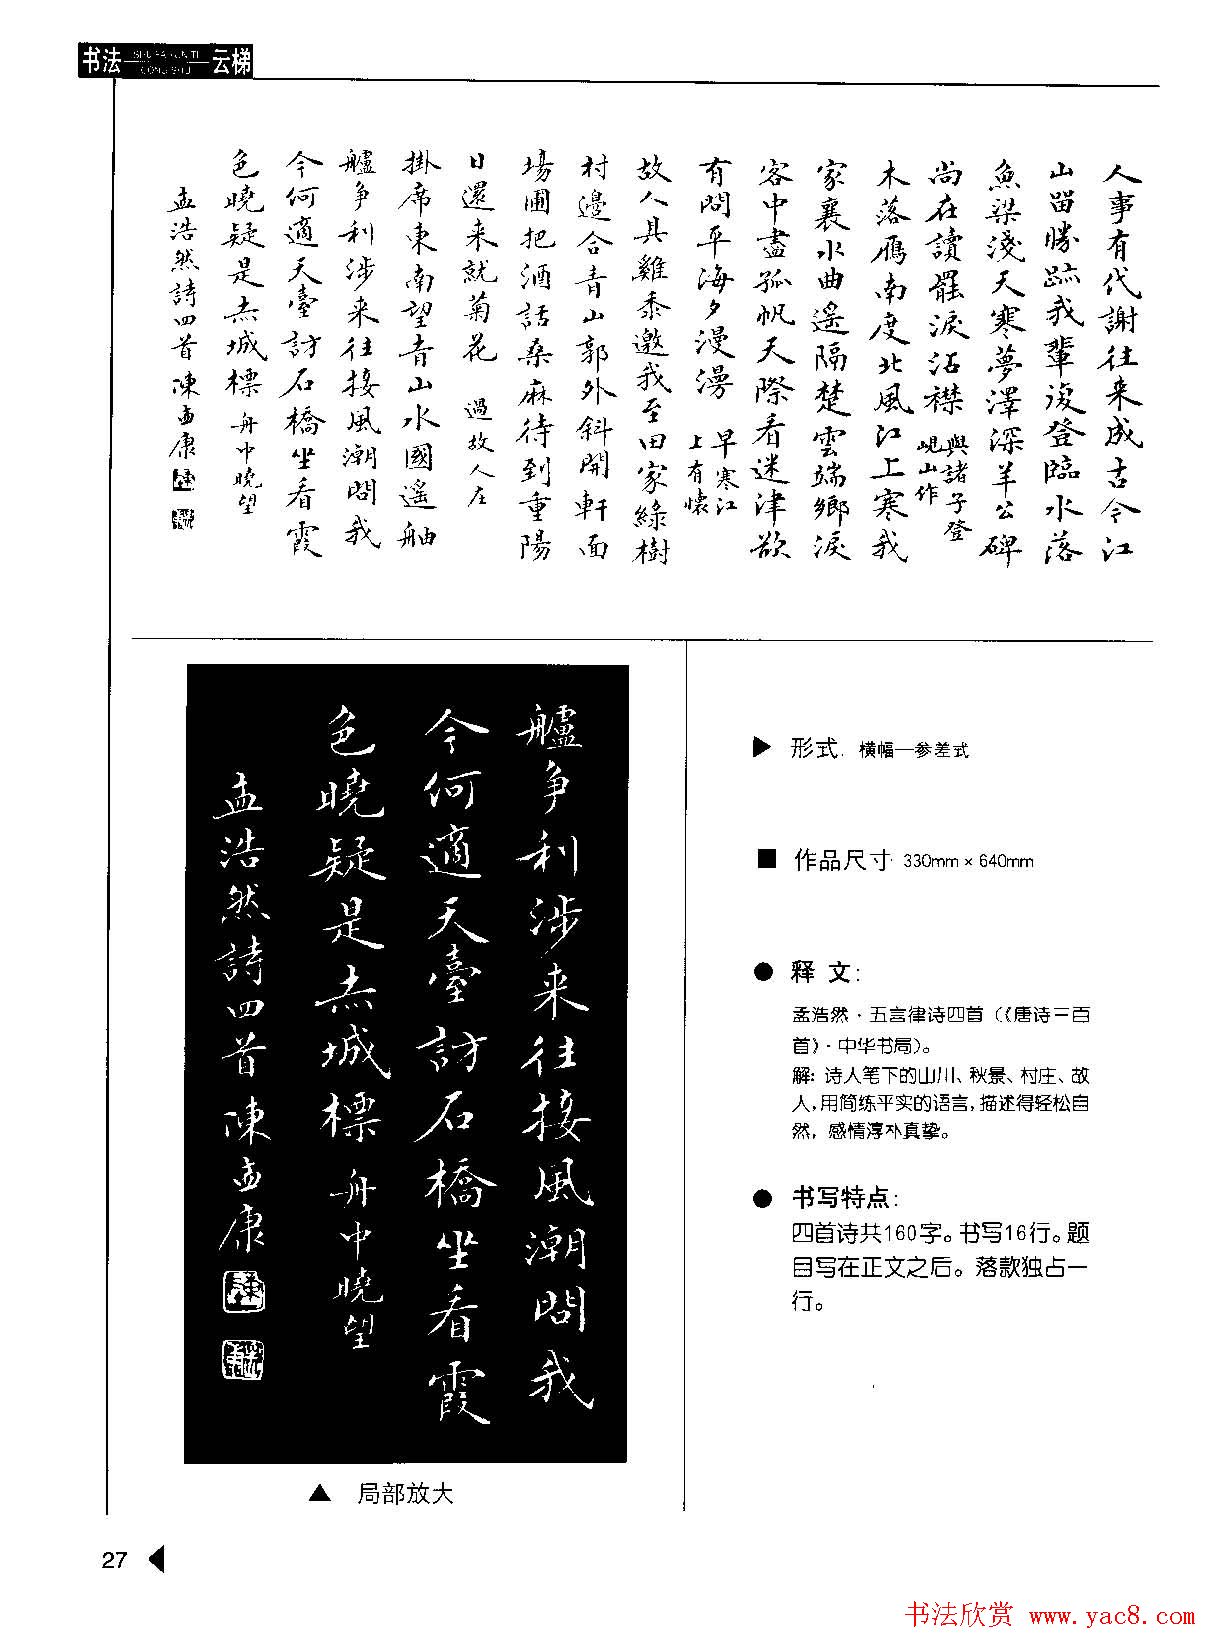 书法 SHU FA YUN TI 云梯
CONG SHU
人事有代謝往来成古今江
山留勝跡我輩復登臨水落
魚梁淺天寒夢澤深羊公碑
尚在讀罷淚沾襟 與諸子登
峴山作
木落雁南度北風江上寒我
家襄水曲遥隔楚雲端鄉淚
客中盡孤帆天際看迷津欲
有問平海夕漫漫 早寒江
上有懷
故人具雞黍邀我至田家緑樹
村邊合青山郭外斜開軒面
場圃把酒話桑麻待到重陽
日還来就菊花 過故人庄
掛席東南望青山水國遥舳
艫争利涉来往接風潮問我
今何適天臺訪石橋坐看霞
色曉疑是赤城標 舟中曉望
孟浩然詩四首陳孟康
艫争利涉来往接風潮問我
今何適天臺訪石橋坐看霞
色曉疑是赤城標 舟中曉望
孟浩然詩四首陳孟康
▲ 局部放大
▶ 形式. 横幅—参差式
■ 作品尺寸· 330mm × 640mm
● 释 文:
孟浩然·五言律诗四首（《唐诗三百
首》·中华书局）。
解: 诗人笔下的山川、秋景、村庄、故
人,用简练平实的语言,描述得轻松自
然，感情淳朴真挚。
● 书写特点:
四首诗共160字。书写16行。题
目写在正文之后。落款独占一
行。
27
书法欣赏 www.yac8.com